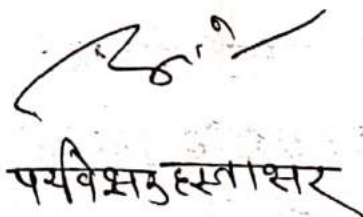 पर्यवेक्षक हस्ताक्षर